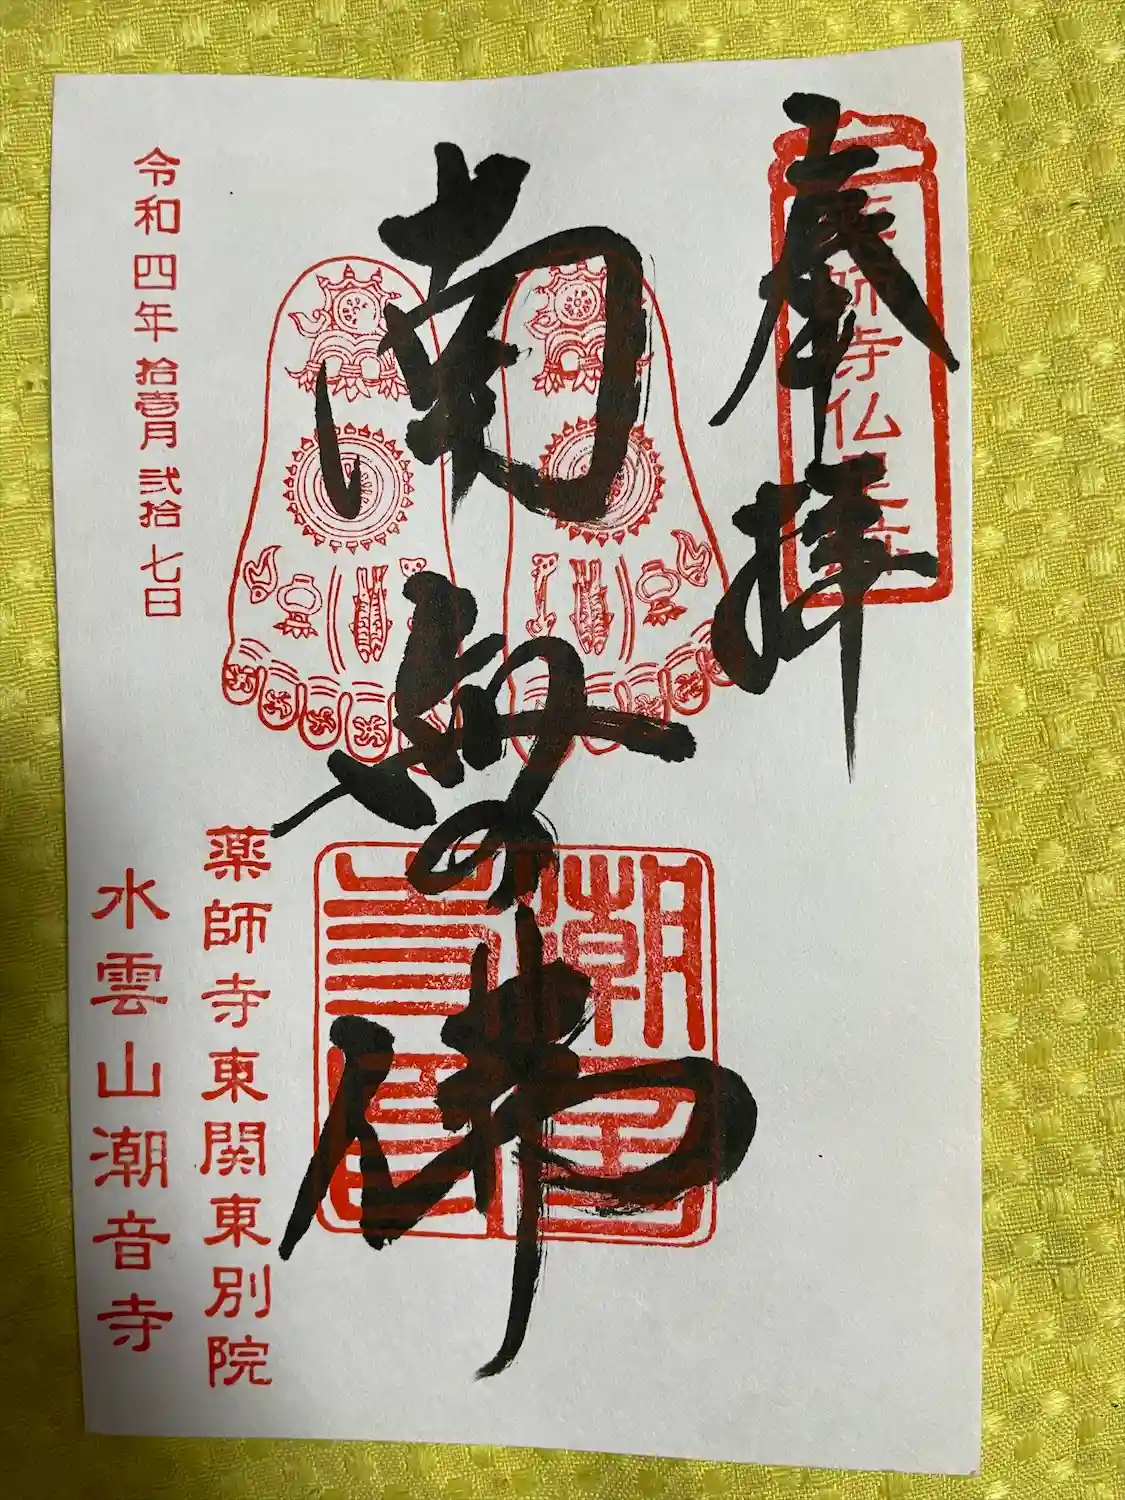 奉拝
薬師寺仏足石
南無佛
潮音寺印
薬師寺東関東別院
水雲山潮音寺
令和四年拾壱月弐拾七日